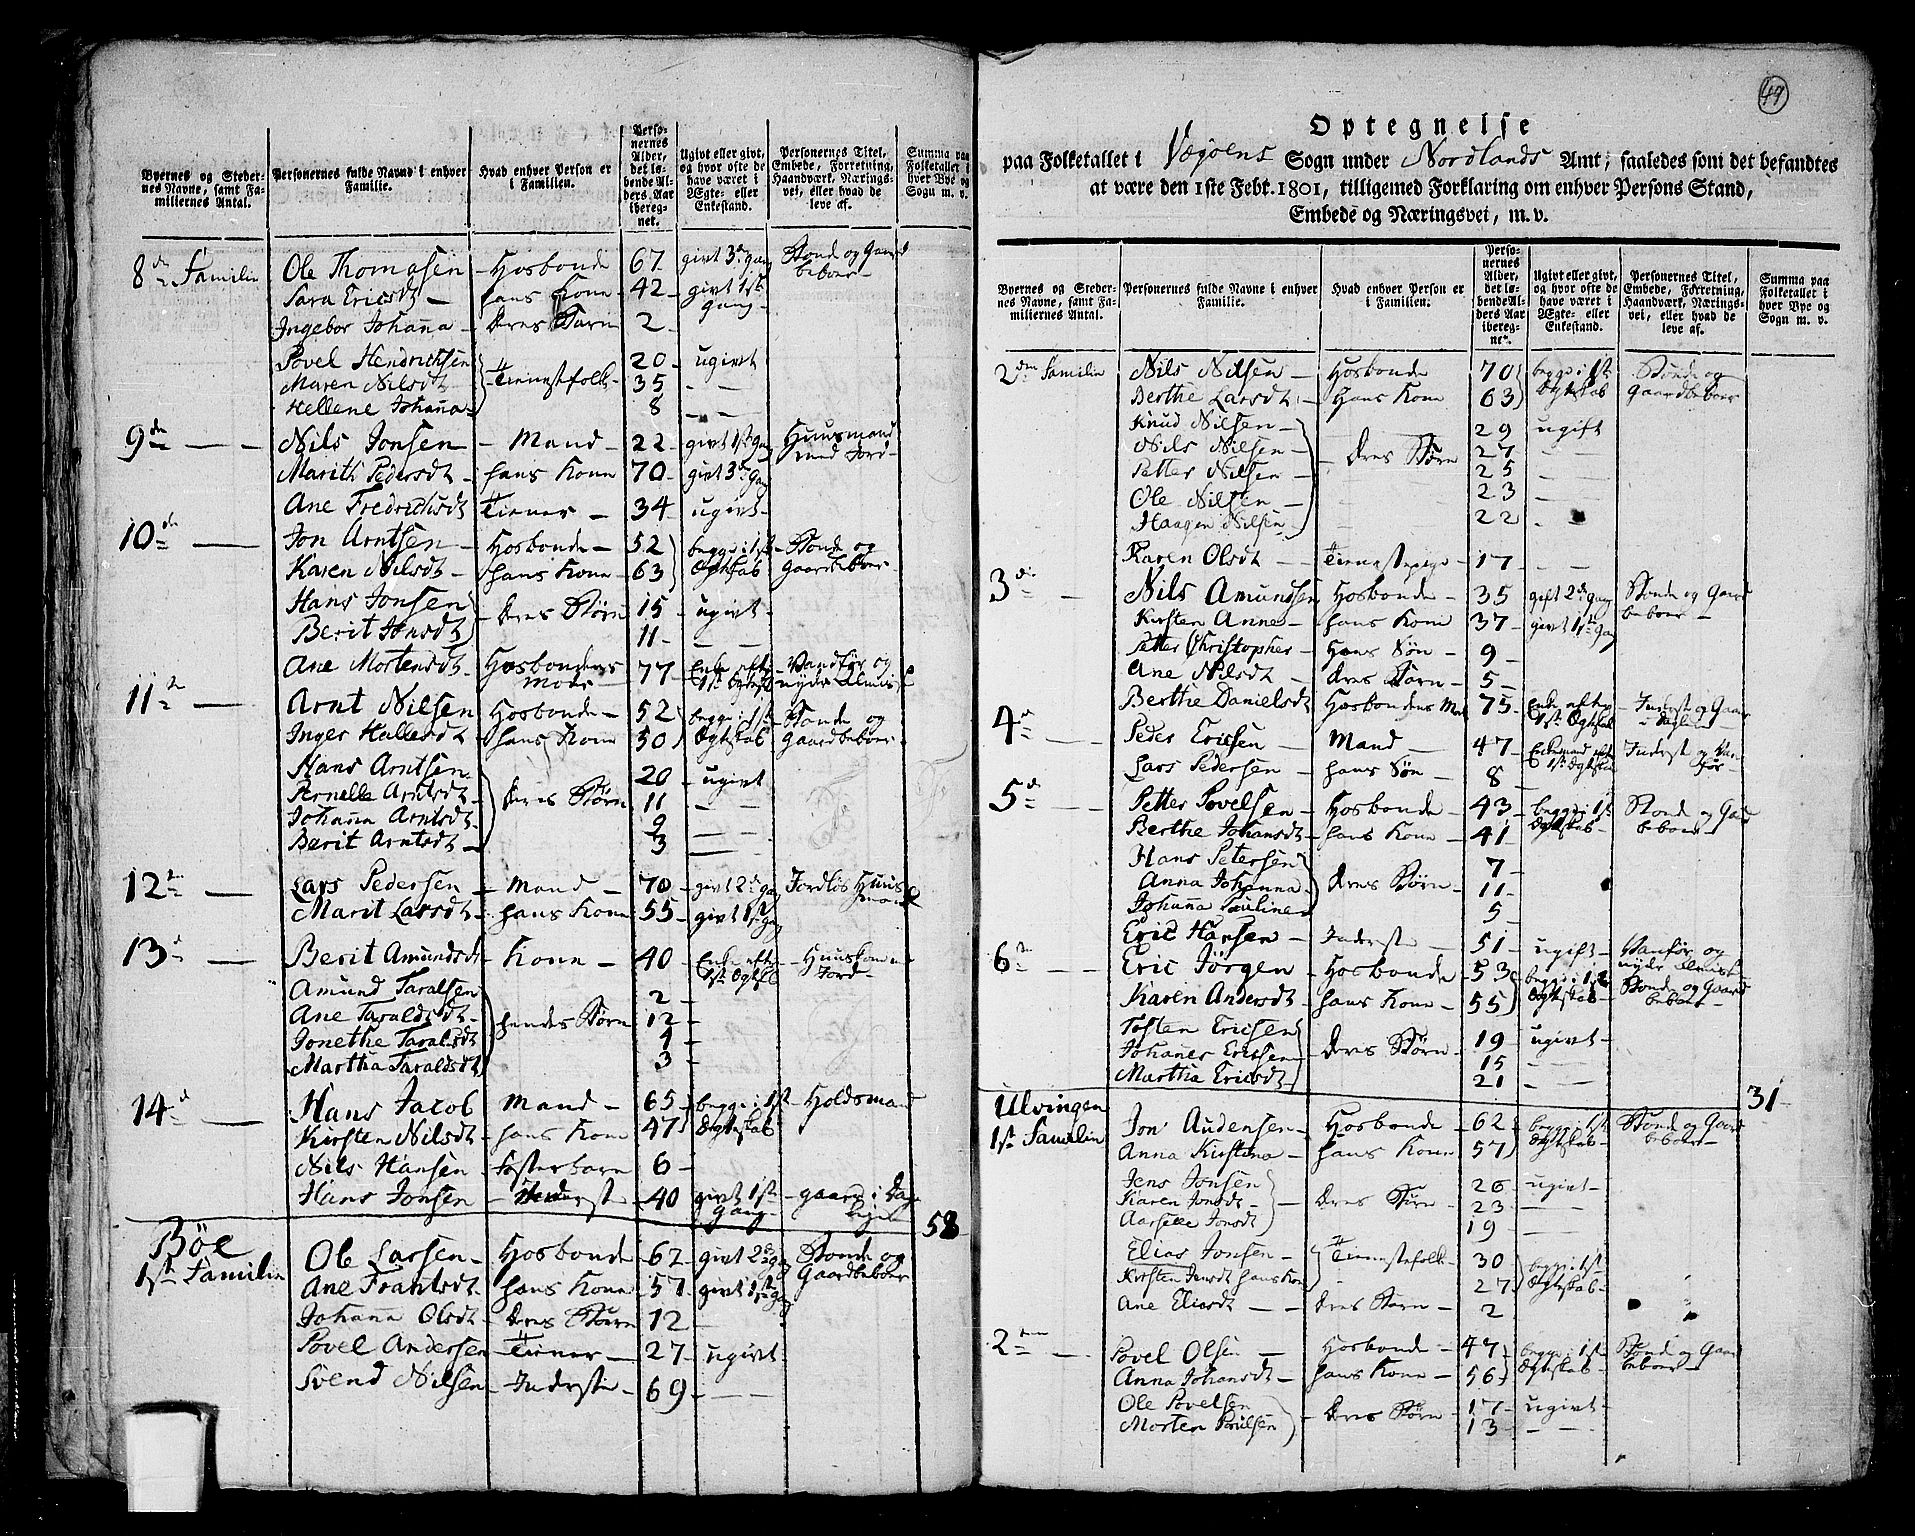 Byernes og Steder-
nes Navne, samt Fa-
miliernes Antal.
Personernes fulde Navne i enhver
Familie.
Hvad enhver Person er
i Familien.
Perso-
nernes
Alder,
det lø-
bende Al-
ders Aar
iberegg-
net.
Ugivt eller givt,
og hvor ofte de
have været i
Ægte- eller
Enkestand.
Personernes Titel,
Embede, Forretning,
Haandværk, Nærings-
vei, eller hvad de
leve af.
Summa paa
Folketallet i
hver Bye og
Sogn m. v.
8de Familie Ole Thomasen - Hosbonde 67 - givt 3de gang Bonde og Gaard beboer -
Sara Ericsdt - hans Kone - 42 - givt 1ste gang -
Ingebor Johanna - Deres Barn 2 -
Povel Hendrichsen 20 - ugivt
Maren Nilsdt - Tienestefolk - 35 - - -
Hellene Johanna - 8 - -
9de - Nils Jonsen - Mand - 22 - givt 1ste gang Huusmand med Jord -
Marith Pedersdt - hans Kone 70 - givt 3de gang
Ane Fredrichsdt Tiener - 34 - ugivt -
10de - Jon Arntsen - Hosbonde - 52 begge i 1ste Ægteskab Bonde og gaardbeboer -
Karen Nilsdt - hans Kone - 63
Hans Jonsen - Deres Børn 15 - ugivt -
Berit Jonsdt 11 - - -
Ane Mortensdt - Hosbondens Moder - 77 - Enke efter 1ste Ægtesk - Vanfør og nyder Almisse
11te - Arnt Nilsen Hosbonde - 52 begge i 1ste Ægteskab Bonde og gaardbeboer -
Inger Hallesdt - hans Kone 50
Hans Arntsen - 20 - ugivt
Pernelle Arntsdt - Deres Børn 11 - - -
Johanna Arntsdt - 9
Berit Arntsdt - 3 - -
12te - Lars Pedersen - Mand - 70 - givt 2de gang Jordløs Huusmand
Marit Larsdt - hans Kone 55 - givt 1ste gang
13de - Berit Amundsdt - Kone - 40 - Enke efter 1ste Ægtesk - Huuskone Jord -
Amund Taralsen 2 -
Ane Taraldsdt - hendes Børn 12 -
Jonethe Taraldsdt 4 -
Martha Taraldsdt 3 -
14de - Hans Jacob Mand - 65 - begge i 1ste Ægteskab - Holdsmand
Kirsten Nilsdt - hans Kone 47
Nils Hansen - fosterbarn 6 -
Hans Jonsen - Inderst - 40 givt 1ste Gang - - gaard i Dag
58 -
Böe
1ste Familie Ole Larsen - Hosbonde - 62 - givt 2de gang Bonde og Gaardbeboer
Ane Frantsdt - hans Kone - 57 - givt 1ste gang
Johanna Olsdt - Deres Børn 12 -
Povel Andersen - Tiener - 27 - ugivt -
Svend Nilsen - Inderste - 69 - - -
49
Optegnelse
paa Folketallet i Vegöens Sogn under Nordlands Amt; saaledes som det befandtes
at være den 1ste Febr. 1801, tilligemed Forklaring om enhver Persons Stand,
Embede og Næringsvei, m. v.
Byernes og Steder-
nes Navne, samt Fa-
miliernes Antal.
Personernes fulde Navne i enhver
Familie.
Hvad enhver Person er
i Familien.
Perso-
nernes
Alder,
det lø-
bende Al-
ders Aar
ibereg-
net.
Ugivt eller givt,
og hvor ofte de
have været i
Ægte- eller
Enkestand.
Personernes Titel,
Embede, Forretning,
Haandværk, Nærings-
vei, eller hvad de
leve af.
Summa paa
Folketallet i
hver Bye og
Sogn m. v.
2den Familie Nils Nilsen - Hosbonde 70 begge i 1ste Ægteskab Bonde og gaardbeboer
Berthe Larsdt - Hans Kone 63
Knud Nilsen - 29 - ugift
Nils Nilsen - Deres Børn - 27 - -
Petter Nilsen - 25
Ole Nilsen - 23 - -
Haagen Nilsen - 22 - -
Karen Olsdt - Tienestepige - 17 - - -
3die - Nils Amundsen Hosbonde - 35 gift 2de gang Bonde og Gaard beboer -
Kirsten Anne - hans Kone 37 - givt 1ste gang
Petter Christopher - Hans Søn - 9 -
Ane Nilsdt - Deres Barn - 5 -
Berthe Danielsdt Hosbondens Mod 75 - Enke efter 1ste Ægtesk - Inderst og Gaar
4de - Peder Ericsen Mand - 47 - Enkemand eft 1ste Ægtesk Inderst og Vanfør -
Lars Pedersen hans Søn - 8 -
5de - Petter Povelsen - Hosbonde - 43 - begge i 1ste Ægteskab - Bonde og Gaard beboer
Berthe Johansdt - hans Kone - 41 -
Hans Petersen 7 -
Anna Johanna - Deres Børn - 11 -
Johanna Pauline 5 -
Eric Hansen - Inderste - 51 - ugift - Vanfør og nyder Almisse
6te - Eric Jörgen - Hosbonde - 53 begge i 1ste Ægteskab - Bonde og Gaard beboer -
Karen Andersdt - hans Kone - 55
Tosten Ericsen 19 - ugivt -
Johanes Ericsen - Deres Børn - 15 - -
Martha Ericsdt 21 - -
31 -
Ulvingen
1ste Familie Jon Audensen - Hosbonde - 62 - begge i 1ste Ægteskab - Bonde og Gaard beboer -
Anna Kirstina - hans Kone - 57
Jens Jonsen 26 - ugivt -
Karen Jonsdt - Deres Børn - 23 - -
Aarselle Jonsdt 19 - -
Elias Jonsen - Tienestefolk - 30 begge i 1ste Ægteskab -
Kirsten Jensdt hans Kone 27
Ane Eliasdt - - Deres Barn - 2
2den - Povel Olsen - Hosbonde - 47 - begge i 1ste Ægteskab - Bonde og Gaard beboer -
Anna Johansdt - hans Kone - 56
Ole Povelsen - Deres Børn - 17 - ugivt -
Morten Povelsen 13 - - -